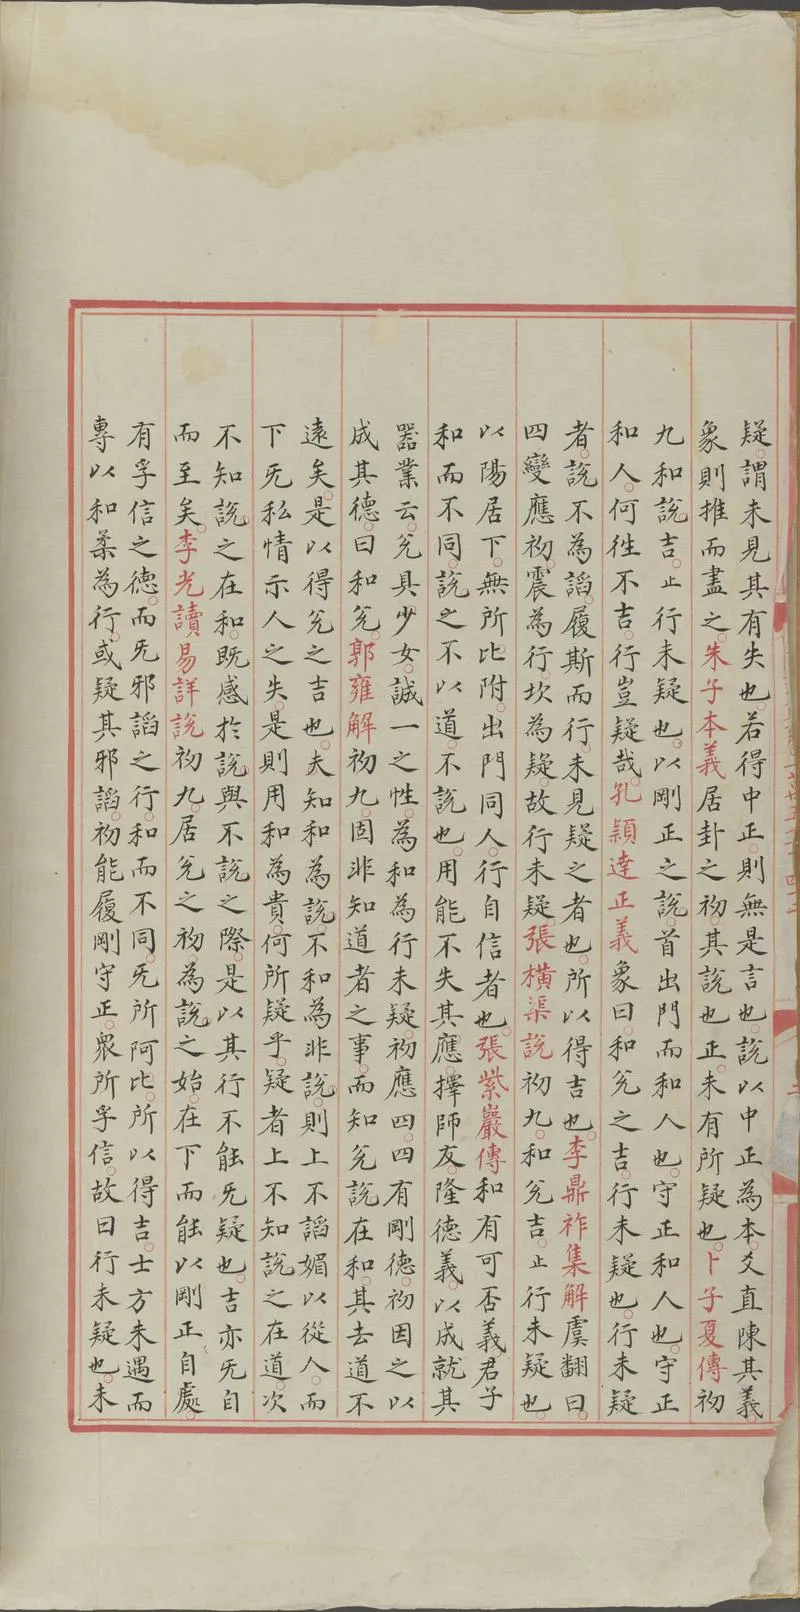 疑。謂未見其有失也。若得中正。則無是言也。說以中正為本。爻直陳其義
象則推而盡之。朱子本義居卦之初。其說也正。未有所疑也。卜子夏傳初
九和說吉。止行未疑也。以剛正之說。首出門而和人也。守正和人也。守正
和人。何徃不吉。行豈疑哉。孔穎達正義象曰。和兊之吉。行未疑也。行未疑
者。說不為諂。履斯而行。未見疑之者也。所以得吉也。李鼎祚集解虞翻曰。
四變應初。震為行。坎為疑。故行未疑。張橫渠說初九。和兊吉。止行未疑也。
以陽居下。無所比附。出門同人。行自信者也。張紫巖傳和有可否義。君子
和而不同。說之不以道。不說也。用能不失其應。擇師友。隆德義。以成就其
器業云。兊具少女。誠一之性。為和為行未疑。初應四。四有剛德。初因之以
成其德。曰和兊。郭雍解初九。固非知道者之事。而知兊說在和。其去道不
遠矣。是以得兊之吉也。夫知和為說。不和為非說。則上不諂媚以從人。而
下旡私情示人之失。是則用和為貴。何所疑乎。疑者上不知說之在道。次
不知說之在和。既感於說與不說之際。是以其行不能旡疑也。吉亦旡自
而至矣。李光讀易詳說初九。居兊之初。為說之始。在下而能以剛正自處。
有孚信之德。而旡邪諂之行。和而不同。旡所阿比。所以得吉。士方未遇而
專以和柔為行。或疑其邪諂。初能履剛守正。衆所孚信。故曰行未疑也。未